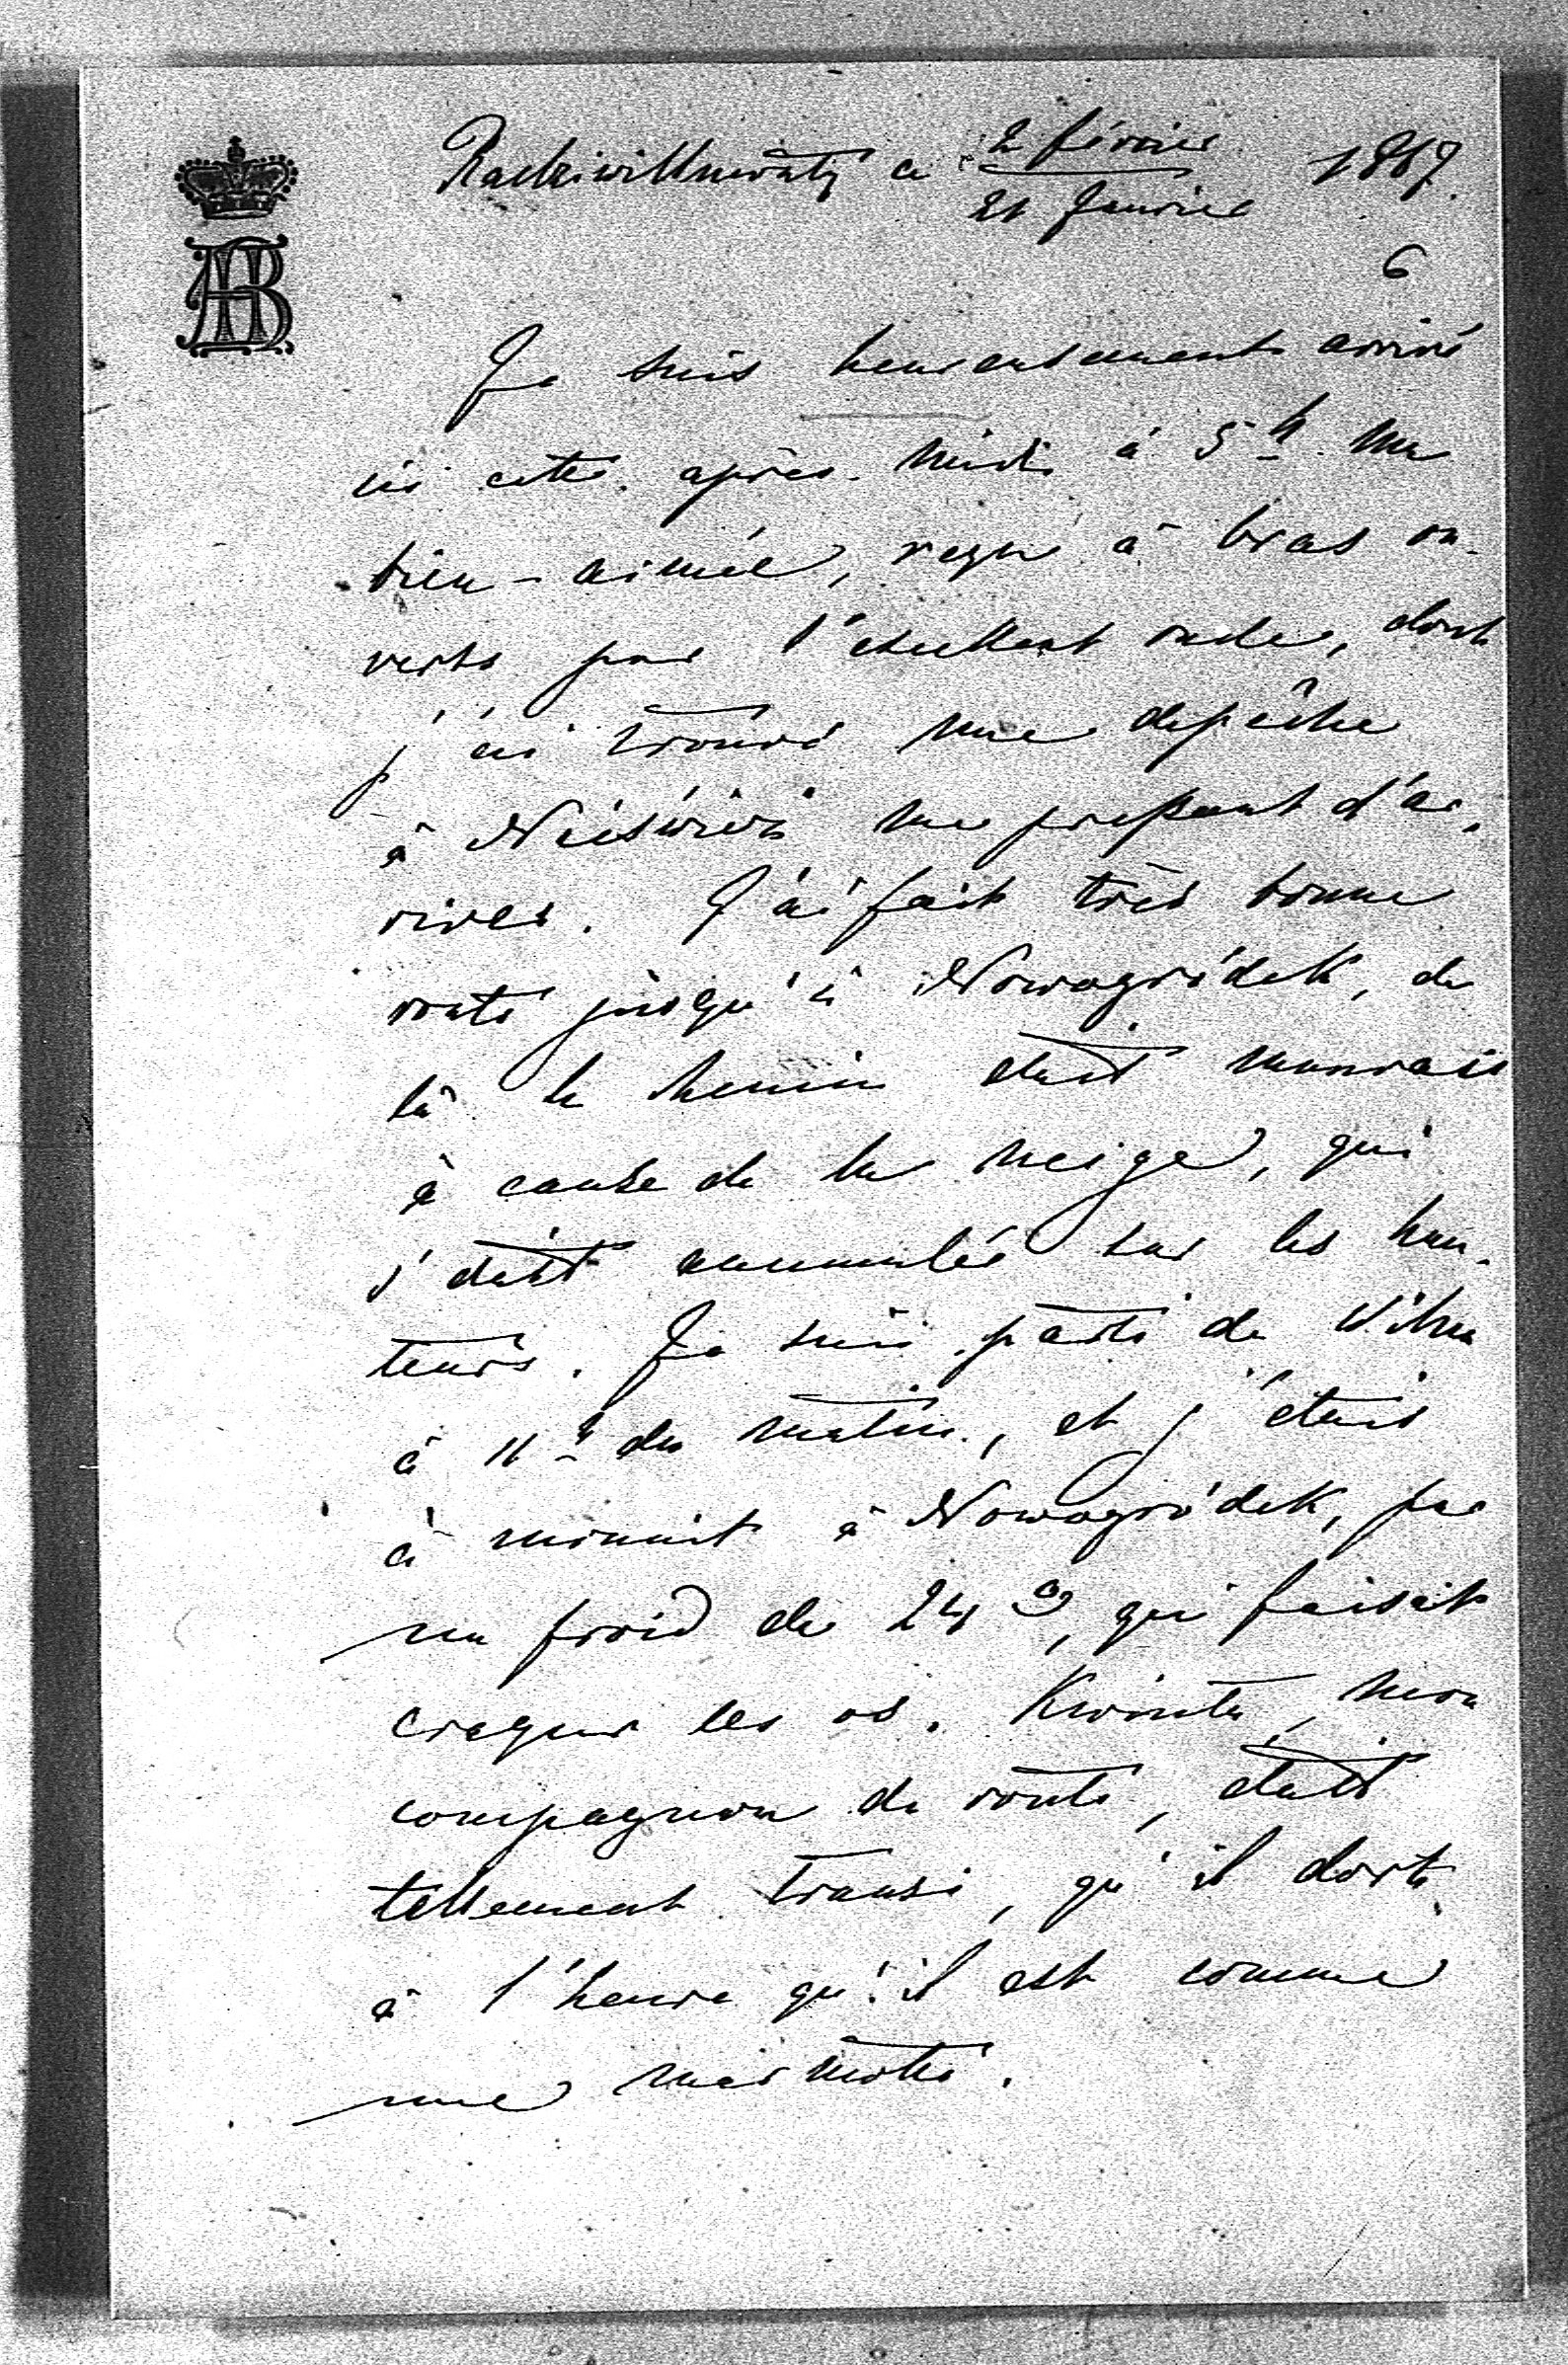 Radziwillmonty ce 2 février 1867.
21 Janvier
6
Je suis heureusement arrivé
ici cette après-midi à 5h ma
bien-aimée, reçu à bras ou-
verts par l'excellent oncle, dont
j'ai trouvé une depêche
à Nieśwież me pressant d'ar-
river. J'ai fait très bonne
route jusqu'à Nowogródek, de
là le chemin était mauvais
à cause de la neige, qui
s'était accumulée sur les hau-
teurs. Je suis parti de Vilna
à 11h du matin, et j'étais
à minuit à Nowogródek, par
un froid de 24°, qui faisait
craquer les os. Kwinta, mon
compagnon de route, était
tellement transi, qu'il dort
à l'heure qu'il est comme
une marmotte.